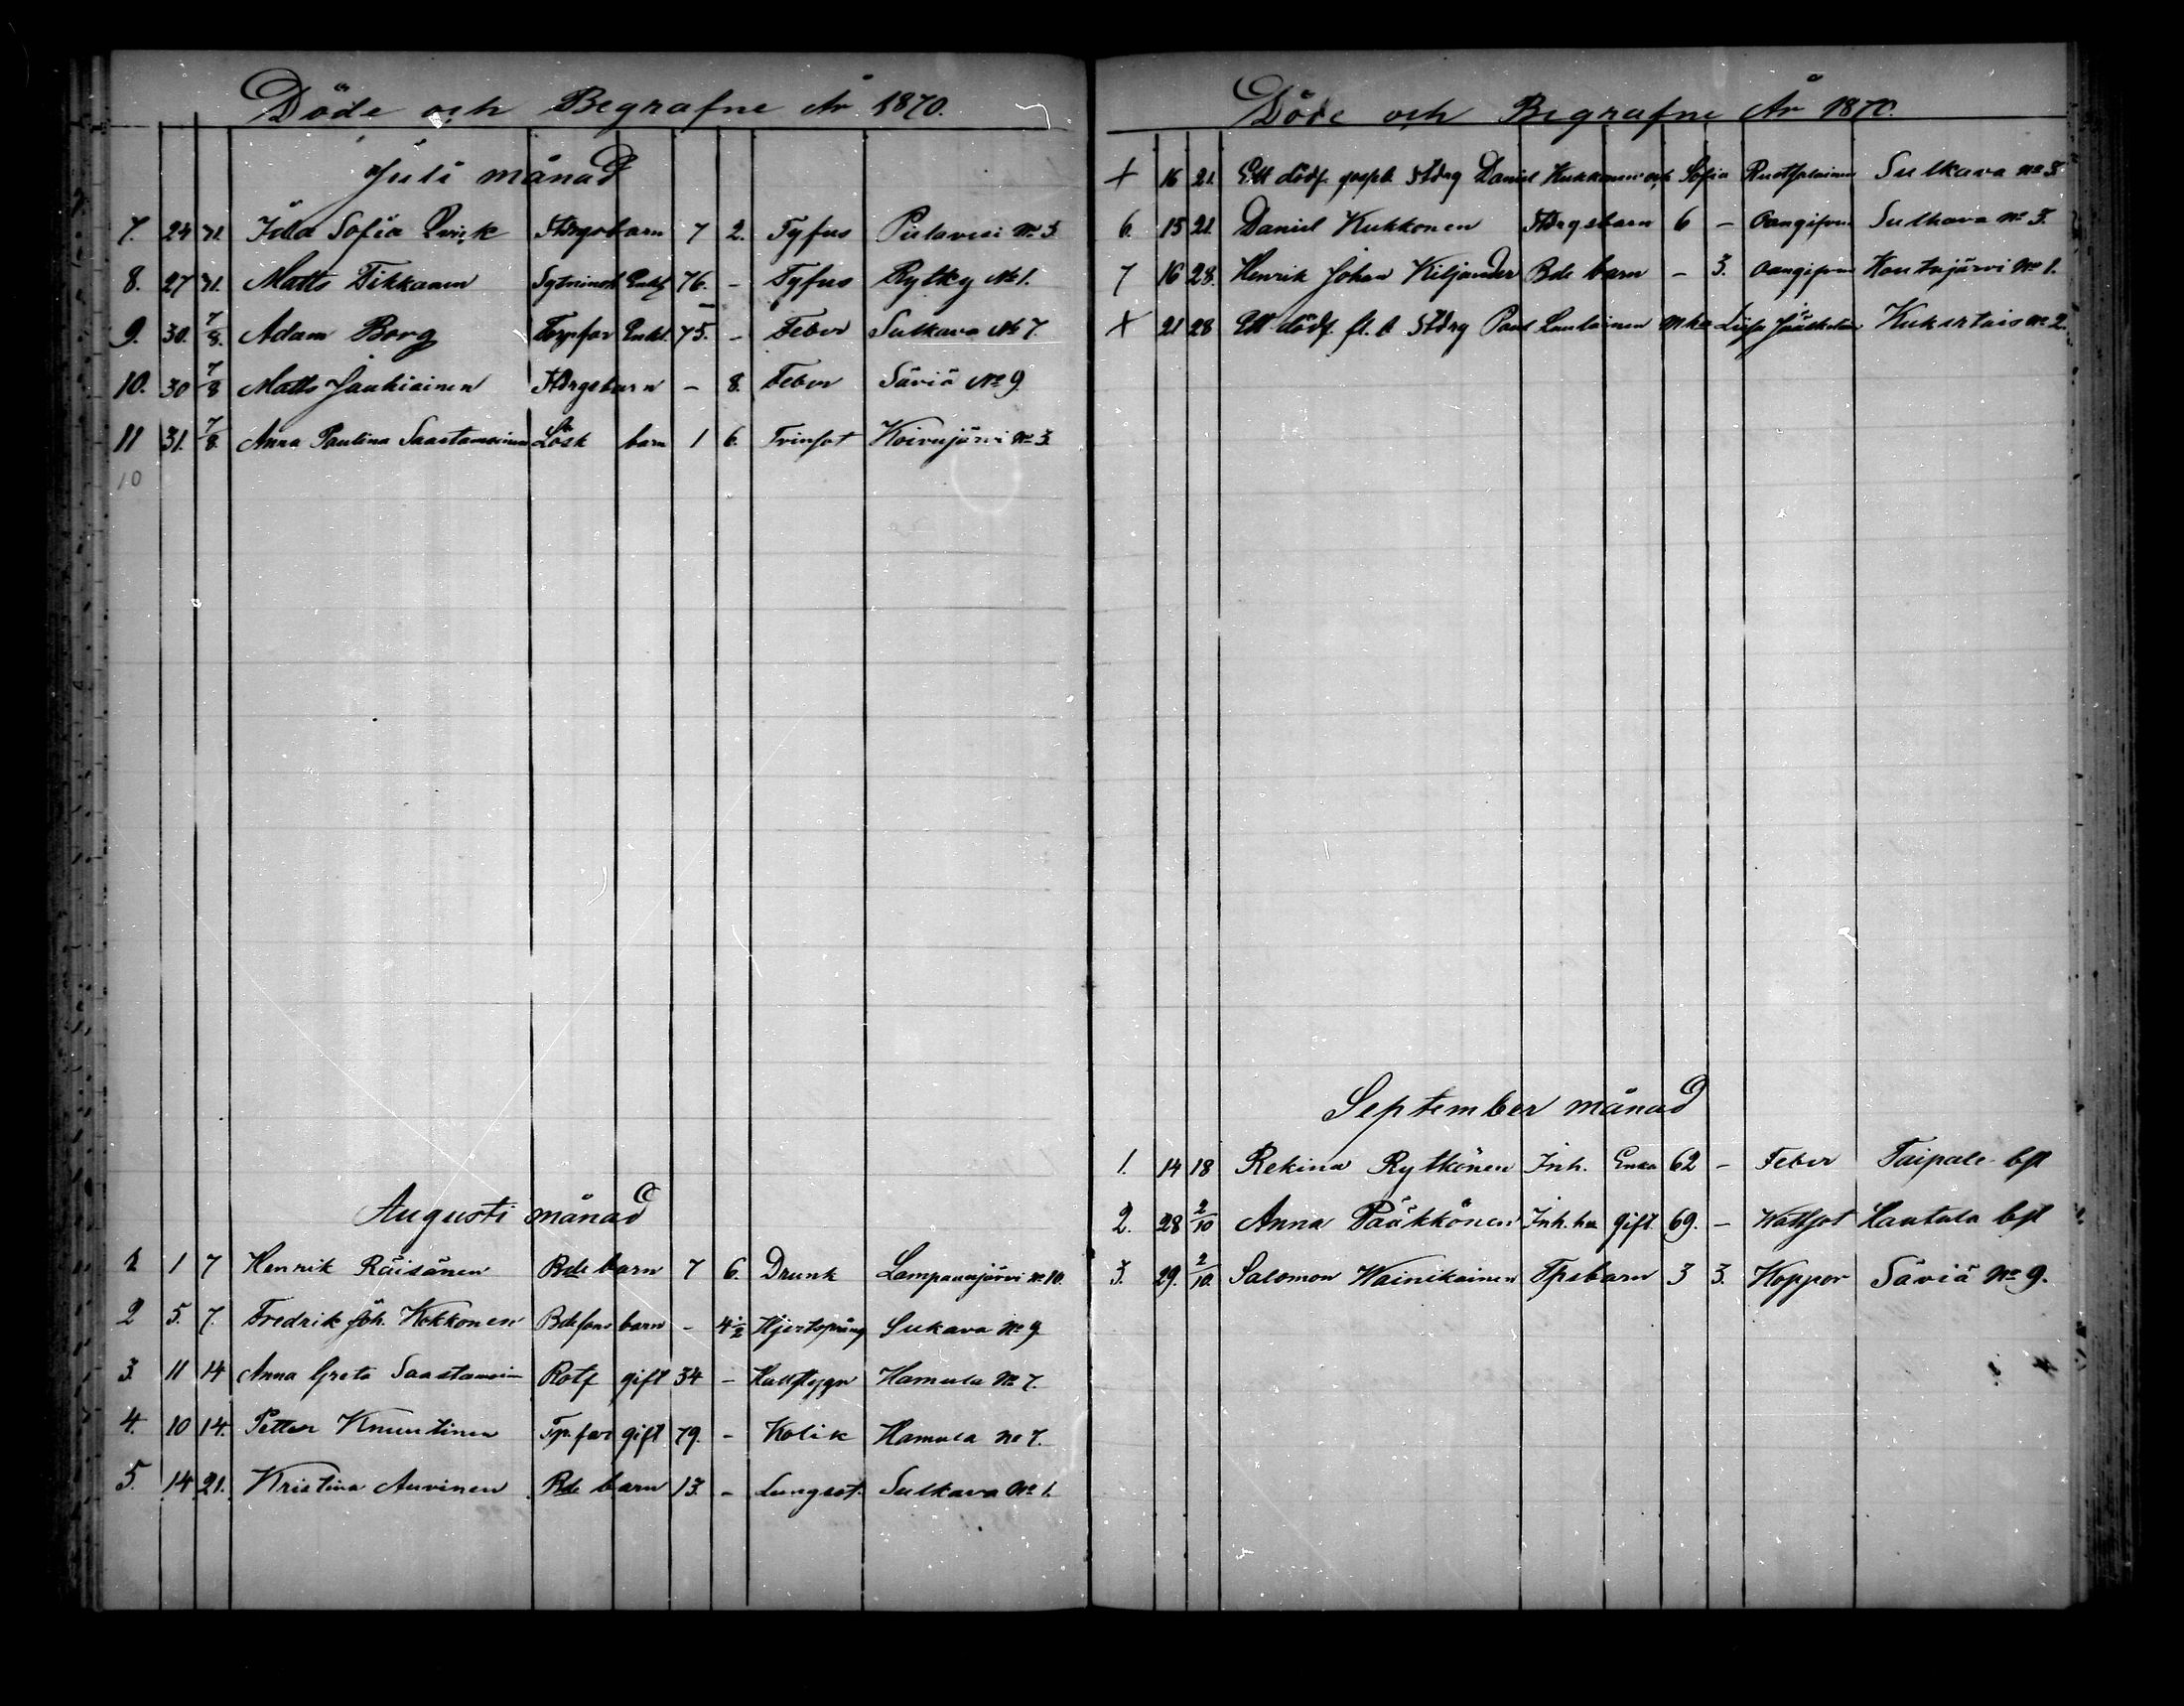 Döde och Begrafne År 1870.
Juli månad
7. 24 31. Ida Sofia Qvick Stdrgsbarn 7 2. Tyfus Pielavesi No 3
8. 27 31. Matts Tikkanen Sytninsk Enkl 76. - Tyfus Rytky No 1.
9. 30. 7/8. Adam Borg Torpfar Enkl. 75. - Feber Sulkava No 7.
10. 30 7/8 Matts Jauhiainen Stdrgsbarn - 8. Feber Säviä No 9
11 31. 7/8. Anna Paulina Saastamoinen Lösk barn 1 6. Tvinsot Koivujärvi No 3.
10
Augusti månad
1 1 7 Henrik Räisänen Bde barn 7 6. Drunk Lampaanjärvi No 10.
2 5. 7. Fredrik Joh. Kokkonen Bdesons barn - 4 1/2 Hjertsprång Sukava No 9
3. 11 14 Anna Greta Saastamoin Rotf gift 34 - Hallflygn Hamula No 7.
4. 10 14. Petter Knuutinen Tp.far gift 79. - Kolik Hamula No 7.
5. 14 21. Kristina Auvinen Bde barn 13. - Lungsot. Sulkava No 1.
Döde och Begrafne År 1870.
+ 16 21. Ett dödf. gossb. Stdrg Daniel Kukkonen och Sofia Ruotsalainen Sulkava No 5
6. 15 21. Daniel Kukkonen Stdrgsbarn 6 - Oangifven Sulkava No 5.
7 16 28. Henrik Johan Kiljander Bde barn - 3. Oangifven Koutajärvi No 1.
+ 21 28 Ett dödf. fl. b Stdrg Paul Laulainen Liisa Jääskeläin No 2.
September månad
1. 14 18 Rekina Rytkönen Inh. Enka 62 - Feber Taipale bst
2. 28 2/10 Anna Pääkkönen Inh.hu gift 69. - Wattsot Hautala bst
3. 29. 2/10. Salomon Wainikainen Tpsbarn 3 3. Koppor Säviä No 9.